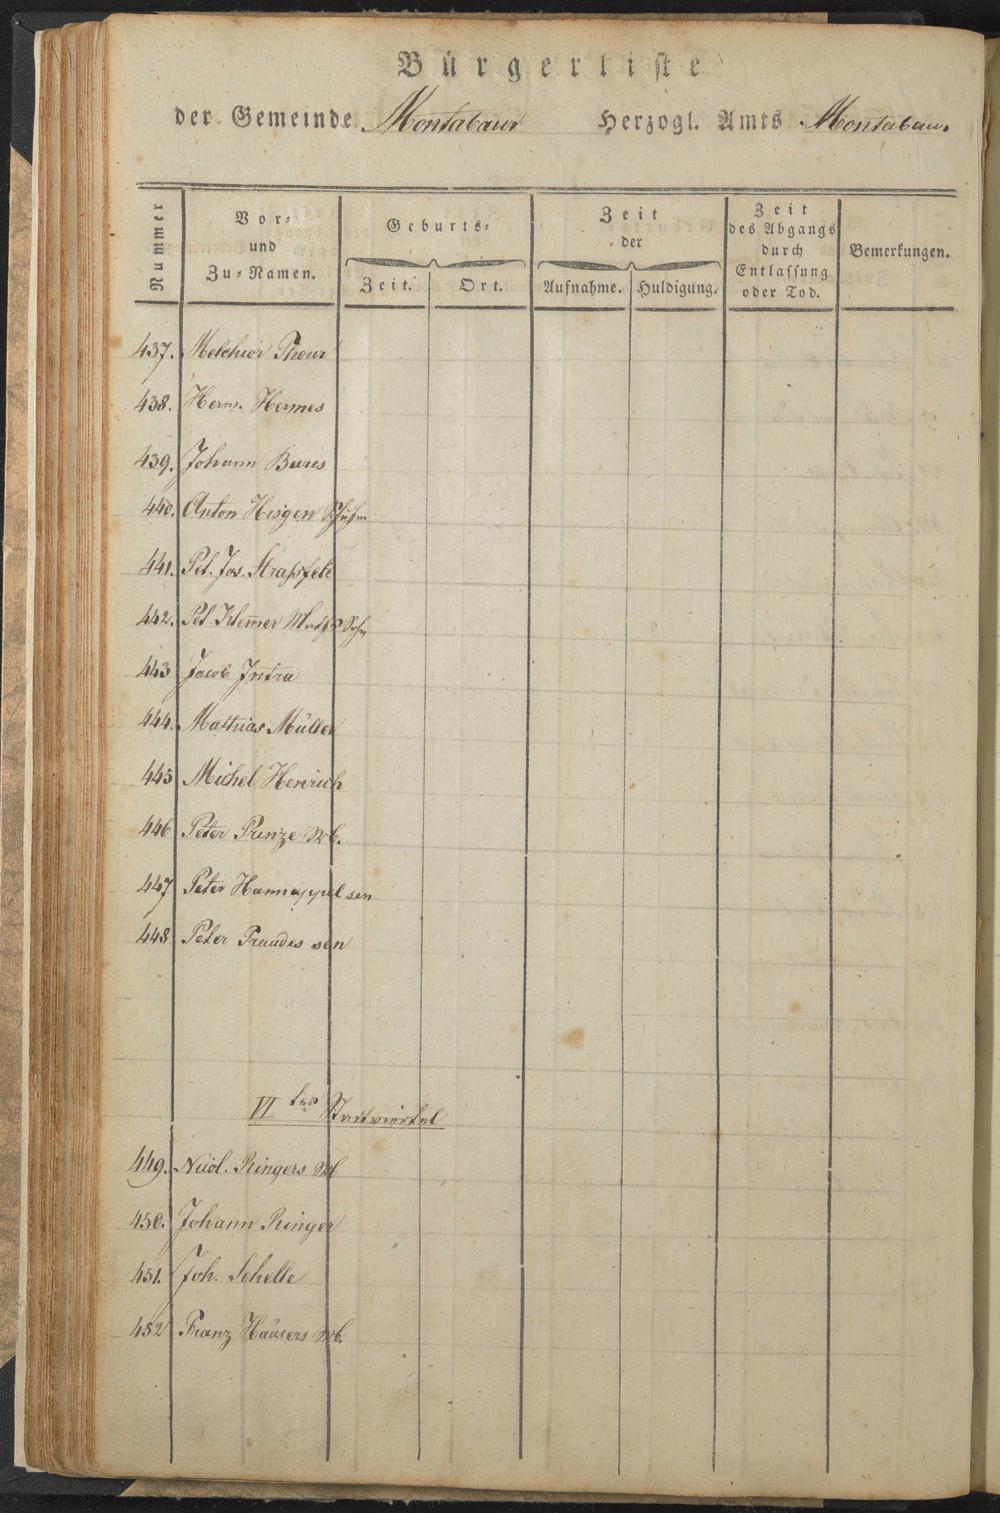 Bürgerliste
der Gemeinde Montabaur Herzogl. Amts Montabaur
Nummer
Vor-
und
Zu-Namen.
Geburts-
Zeit. Ort.
Zeit
der
Aufnahme. Huldigung.
Zeit
des Abgangs
durch
Entlassung
oder Tod.
Bemerkungen.
437. Melchior Thour
438. Herm. Hermes
439. Johann Bures
440. Anton Hisgen Schuhm
441. Pet. Jos. Straßfeld
442. Pet. Klem̄er Sohn
443 Jacob Intra
444. Mathias Müller
445 Michel Henrich
446 Peter Prinze Wb.
447 Peter Hannappel sen
448 Peter sen
VI tes Stadtviertel
449. Nicol. Ringers Wb
450. Johann Ringer
451. Joh. Schelle
452 Franz Häusers Wb.